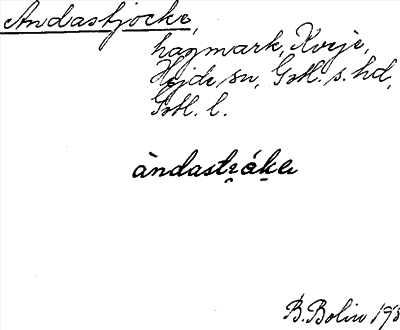 Andastjocke,
hagmark, Kvie,
Hejde sn, Gotl. s. hd,
Gotl. l.
àndastṛák̩e
B. Bolin 193